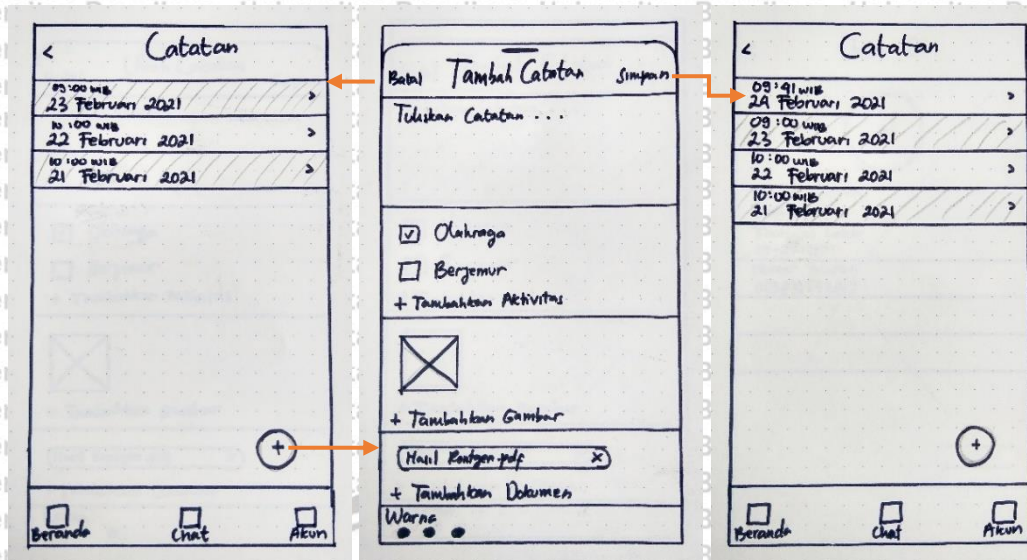 Catatan
09:00 WIB
23 Februari 2021
10:00 WIB
22 Februari 2021
10:00 WIB
21 Februari 2021
Beranda
Chat
Akun
Batal Tambah Catatan Simpan
Tuliskan Catatan ...
Olahraga
Berjemur
+ Tambahkan Aktivitas
+ Tambahkan Gambar
Hasil Rontgen.pdf X
+ Tambahkan Dokumen
Warna
Catatan
09:41 WIB
24 Februari 2021
09:00 WIB
23 Februari 2021
10:00 WIB
22 Februari 2021
10:00 WIB
21 Februari 2021
Beranda
Chat
Akun